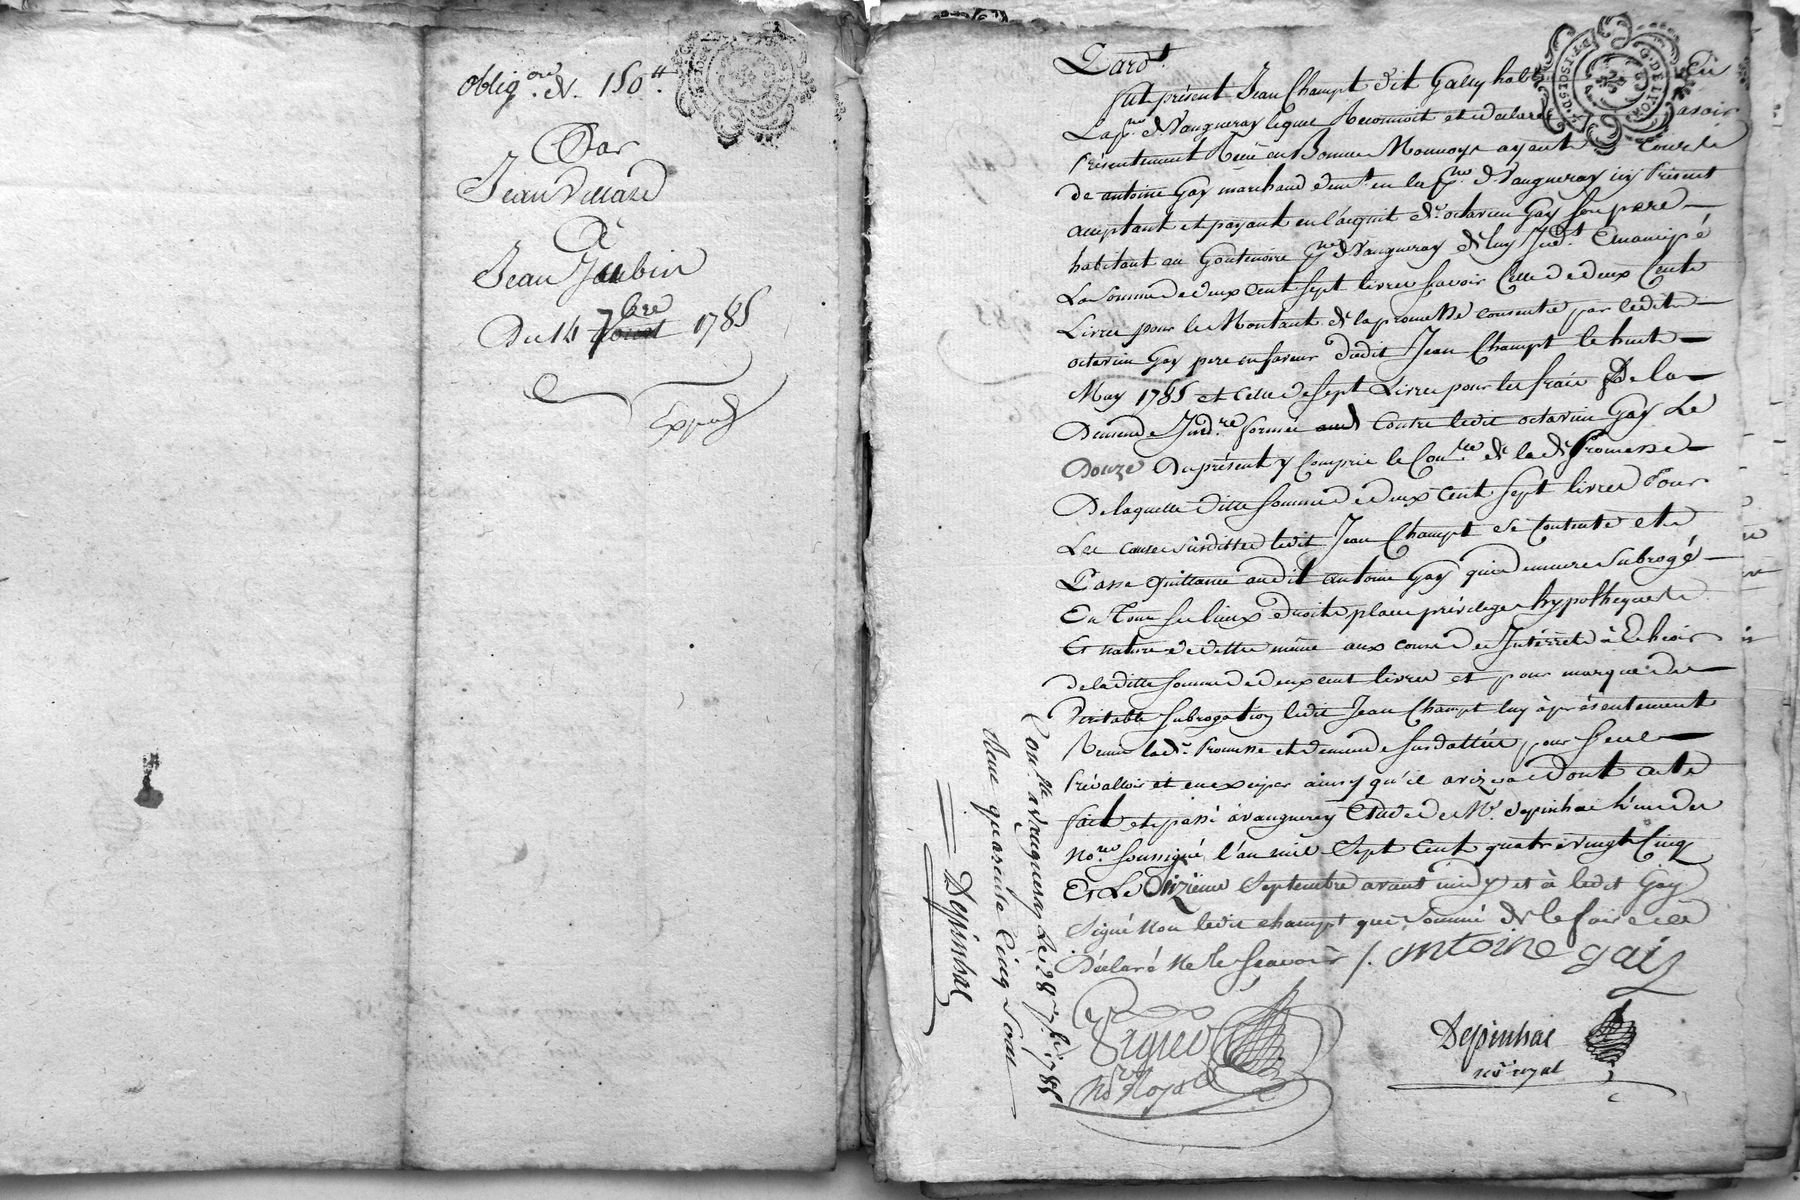 oblig.on de 150 tt.
Par
Jean Villard
à
Jean Jaubin
Du 14 7bre 1785
Exped
G. DE LYON
Pard.t
fut présent Jean Champt dit Gally habt. En
La p.sse de Vaugneray lequel Reconnoit et declare avoir
Présentement Reçu en Bonne Monnoye ayant Cours
de antoine Gay marchand demt. en la p.sse de Vaugneray icy Présent
acceptant et payant en l'acquit de s.r octavien Gay son pere
habitant au Goutenoire p.sse de Vaugneray de luy Emancipé
La somme de deux cent sept livres savoir Celle de deux Cents
Livres pour le Montant de la promesse consentie par ledit
octavien Gay pere en faveur dudit Jean Champt le huit
May 1785 et Celle de sept Livres pour les fraix De la
Demande Jud.re formée contre ledit octavien Gay Le
Douze Du présent y Compris le Con.lle de la d.e Promesse
De laquelle ditte somme de deux cent sept livres Pour
Les causes susdittes ledit Jean Champt se Contente et
Passe Quittance audit antoine Gay qui demeure Subrogé
En Tous ses lieux droits place privileges hypotheques
Et nature de dette même aux cours des Intérrêts à Echeoir
de la ditte somme de deux cent livres et pour marque de
Véritable Subrogation ledit Jean Champt luy à présentement
Remis lad.e Promesse et demande susdattée pour s'en
Prévalloir et en exiger ainsy qu'il avizera dont acte
fait et passé à Vaugneray Etude de M.e Depinhac l'un des
No.res soussignés l'an mil Sept Cent quatre vingt Cinq
Et Le Septembre avant midy et à ledit Gay
Signé Non ledit champt qui Sommé de le faire a
Déclaré Ne le Scavoir /. antoine gaiz
Con.lle a Vaugneray le 28 7.bre 1785
Reçu quarante Cinq Sols
Depinhac
Vignes
No.re Royal
Depinhac
no.re royal